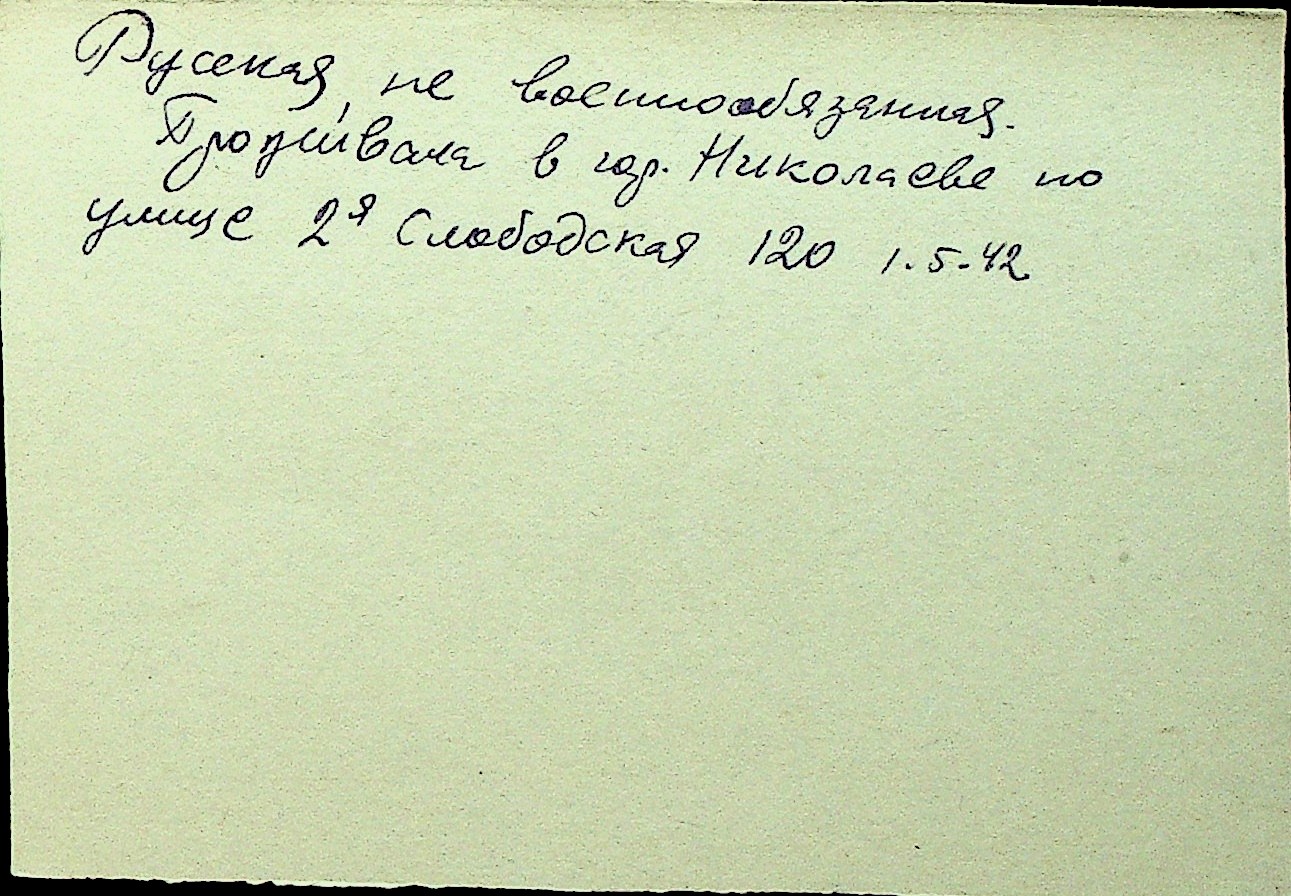 Русская, не военнообязанная.
Проживала в гор. Николаеве по
улице 2я Слободская 120 1.5.42